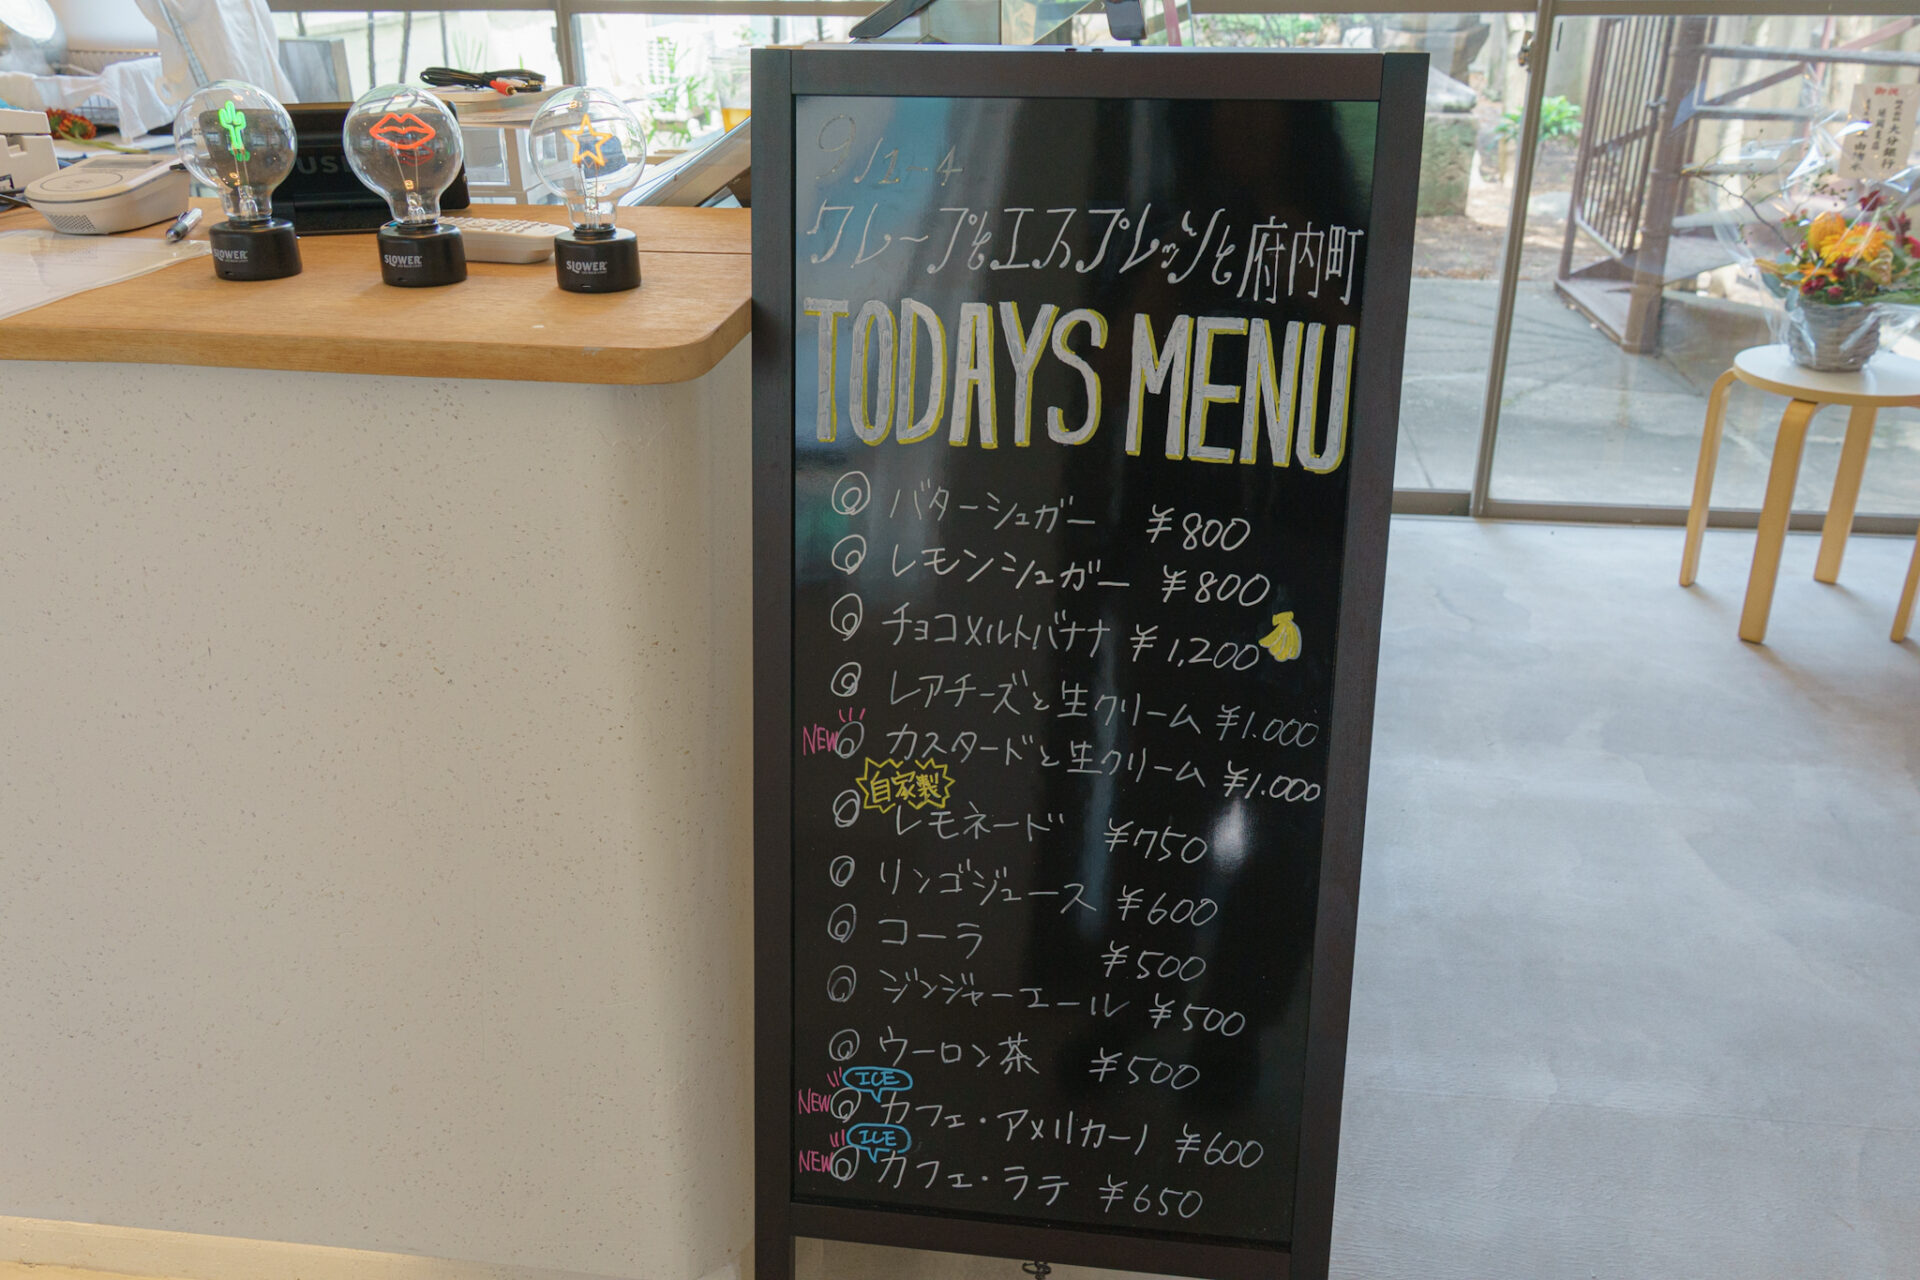 9/1-4
クレープとエスプレッソと府内町
TODAYS MENU
バターシュガー ¥800
レモンシュガー ¥800
チョコメルトバナナ ¥1,200
レアチーズと生クリーム ¥1.000
NEW カスタードと生クリーム ¥1.000
自家製
レモネード ¥750
リンゴジュース ¥600
コーラ ¥500
ジンジャーエール ¥500
ウーロン茶 ¥500
ICE
NEW カフェ・アメリカーノ ¥600
ICE
NEW カフェ・ラテ ¥650
SLOWER
SLOWER
SLOWER
御祝
大分銀行